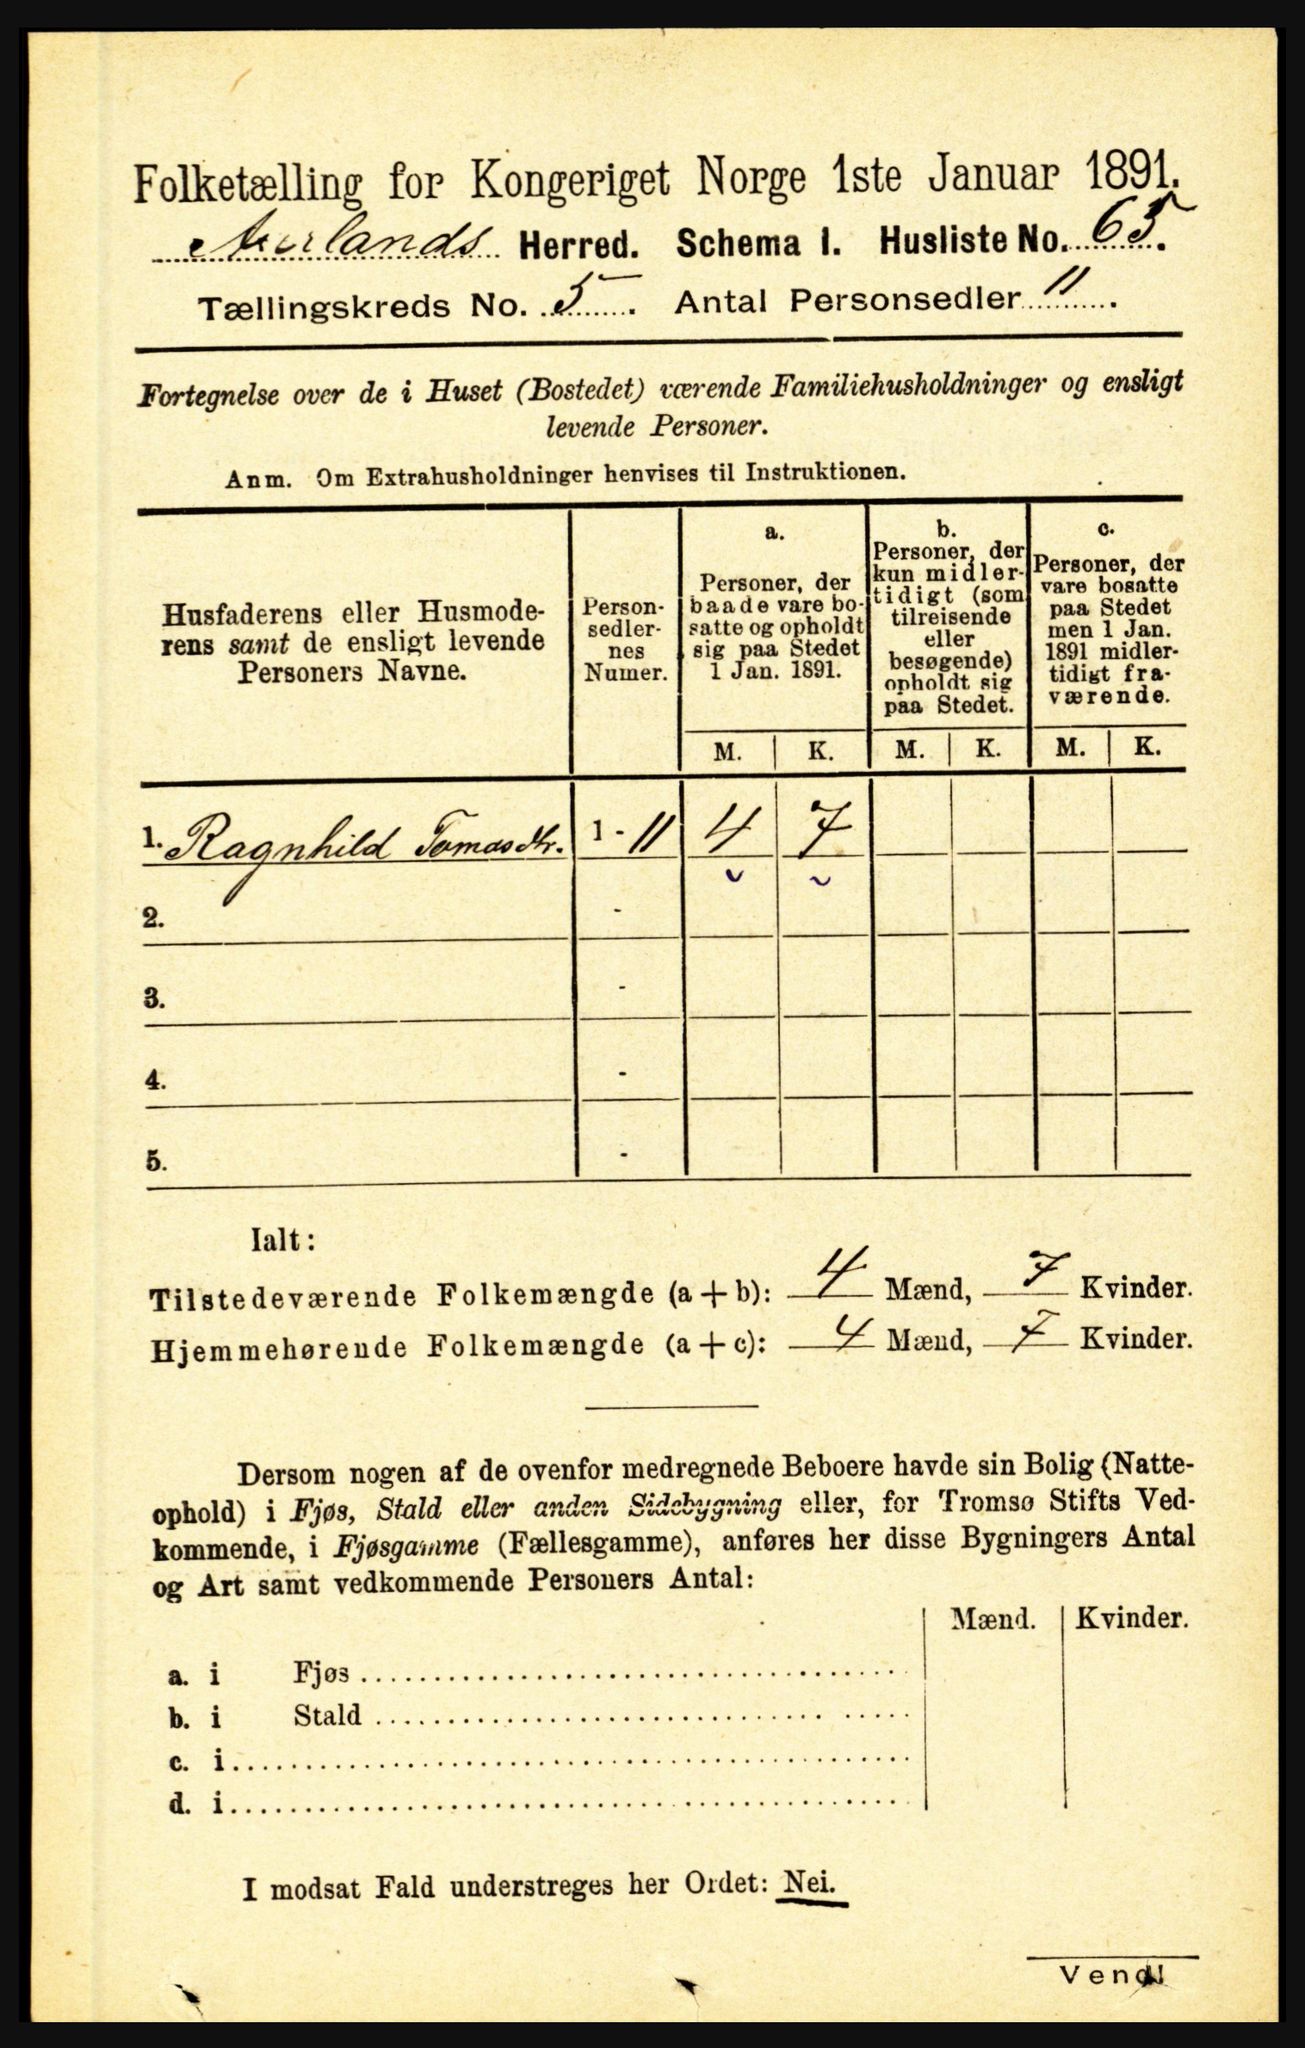 Folketælling for Kongeriget Norge 1ste Januar 1891.
Aurlands Herred. Schema I. Husliste No. 65.
Tællingskreds No. 5. Antal Personsedler 11.
Fortegnelse over de i Huset (Bostedet) værende Familiehusholdninger og ensligt
levende Personer.
Anm. Om Extrahusholdninger henvises til Instruktionen.
Husfaderens eller Husmode-
rens samt de ensligt levende
Personers Navne.
Person-
sedler-
nes
Numer.
a.
Personer, der
baade vare bo-
satte og opholdt
sig paa Stedet
1 Jan. 1891.
b.
Personer, der
kun midler-
tidigt (som
tilreisende
eller
besøgende)
opholdt sig
paa Stedet.
c.
Personer, der
vare bosatte
paa Stedet
men 1 Jan.
1891 midler-
tidigt fra-
værende.
M. K. M. K. M. K.
1. Ragnhild Tomasdtr. 1 - 11 4 7
2. -
3. -
4. -
5. -
Ialt:
Tilstedeværende Folkemængde (a + b): 4 Mænd, 7 Kvinder.
Hjemmehørende Folkemængde (a + c): 4 Mænd, 7 Kvinder.
Dersom nogen af de ovenfor medregnede Beboere havde sin Bolig (Natte-
ophold) i Fjøs, Stald eller anden Sidebygning eller, for Tromsø Stifts Ved-
kommende, i Fjøsgamme (Fællesgamme), anføres her disse Bygningers Antal
og Art samt vedkommende Personers Antal:
Mænd. Kvinder.
a. i Fjøs
b. i Stald
c. i
d. i
I modsat Fald understreges her Ordet: Nei.
Vend!